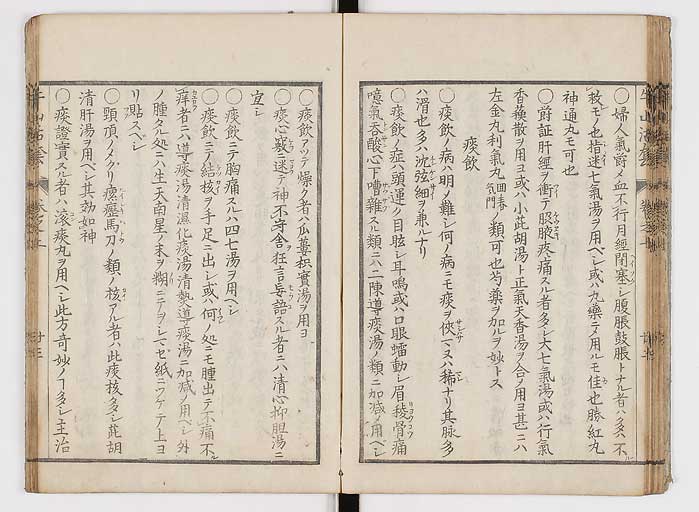 ○婦人氣欝メ血不行月經閉塞シ腹脹鼓脹トナル者ハ多ハ不
救モノ也指迷七氣湯ヲ用ベシ或ハ丸藥ニテメ用ルモ佳也勝紅丸
神通丸モ可也
○欝証肝經ヲ衝テ股腋疼痛スル者多シ大七氣湯或ハ行氣
香蘓散ヲ用ヨ或ハ小茈胡湯ト正氣天香湯ヲ合メ用ヨ甚ニハ
左金丸利氣丸回春氣門ノ類可也芍藥ヲ加ルヲ妙トス
痰飲
○痰飲ノ病ハ明メ難シ何ノ病ニモ痰ヲ俠マヌハ稀ナリ其脉多
ハ滑也多ハ沈弦細ヲ兼ルナリ
○痰飲ノ症ハ頭運ク目眩シ耳鳴或ハ口眼蠕動シ眉稜骨痛
噫氣吞酸心下嘈雜スル類ニハ二陳導痰湯ノ類ニ加減メ用ベシ
○痰飲アツテ燥ク者ハ瓜蔞枳實湯ヲ用ヨ
○痰心竅ニ迷テ神不守舍狂言妄語スル者ニハ清心抑胆湯ニ
宜シ
○痰飲ニテ胸痛スルハ四七湯ヲ用ベシ
○痰飲ニテ結核ヲ手足ニ出シ或ハ何ノ処ニモ腫出テ不痛不
痒者ニハ導痰湯清濕化痰湯清熱導痰湯ニ加減メ用ベシ外
ノ腫タル処ニハ生天南星ノ末ヲ糊ニテヲシマセ紙ニツケテ上ヨ
リ貼スベシ
○頸項ノメクリ瘰癧馬刀ノ類ノ核アル者ハ此痰核多シ茈胡
清肝湯ヲ用ベシ其効如神
○痰證實スル者ハ滾痰丸ヲ用ベシ此方奇妙ノヿ多シ主治